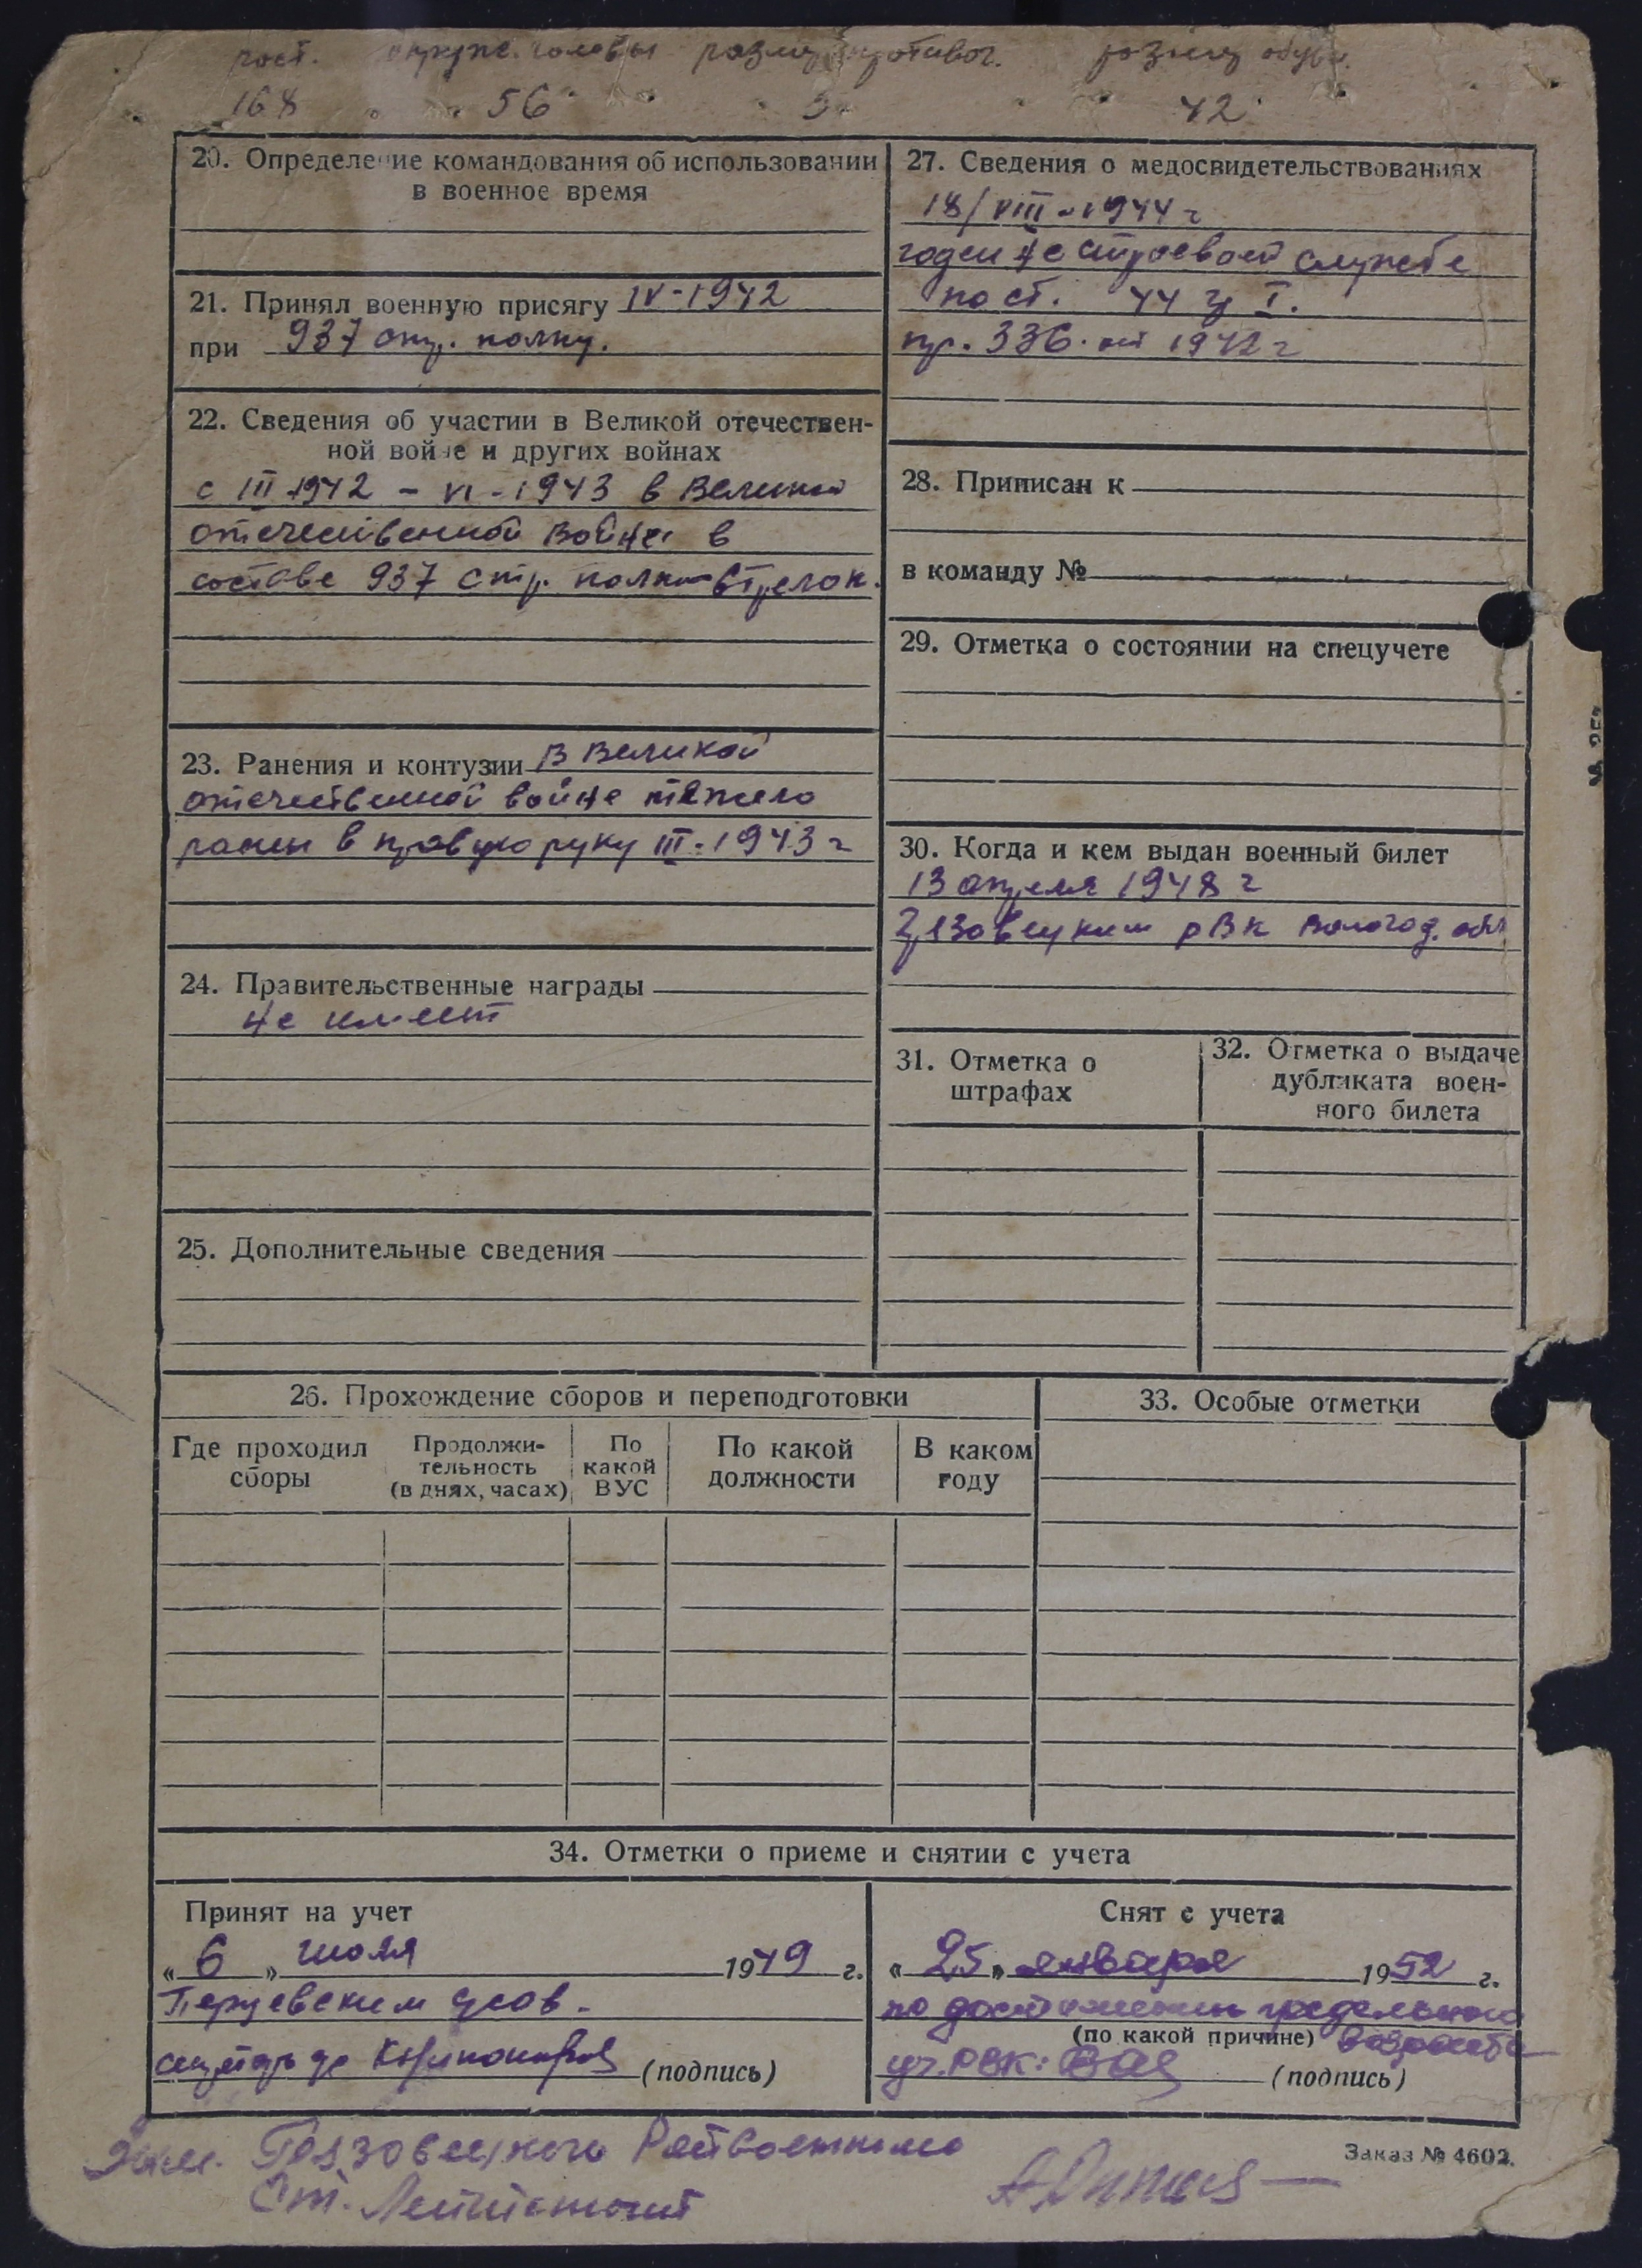 рост. окруж. головы размер противог. размер обуви.
168 56 3 42
20. Определение командования об использовании
в военное время
21. Принял военную присягу IV-1942
при 937 стр. полку.
22. Сведения об участии в Великой отечествен-
ной войне и других войнах
с III-1942 - VI-1943 в Великой
отечественной войне в
составе 937 стр. полка стрелок.
23. Ранения и контузии В Великой
отечественной войне тяжело
ранен в правую руку III-1943 г
24. Правительственные награды
не имеет
25. Дополнительные сведения
27. Сведения о медосвидетельствованиях
18/VIII-1944 г
годен нестроевой службе
по ст. 44 I.
пр. 336 от 1942 г
28. Приписан к
в команду №
29. Отметка о состоянии на спецучете
30. Когда и кем выдан военный билет
13 апреля 1948 г
Грязовецким РВК Вологод. обл
31. Отметка о
штрафах
32. Отметка о выдаче
дубликата воен-
ного билета
26. Прохождение сборов и переподготовки
Где проходил
сборы
Продолжи-
тельность
(в днях, часах)
По
какой
ВУС
По какой
должности
В каком
году
33. Особые отметки
34. Отметки о приеме и снятии с учета
Принят на учет
„ 6 „ июля 1949 г.
(подпись)
Снят с учета
„ 25 „ января 1952 г.
по достижении предельного
(по какой причине) возраста
(подпись)
Грязовецкого Райвоенкома
Ст. Лейтенант
Заказ № 4602.